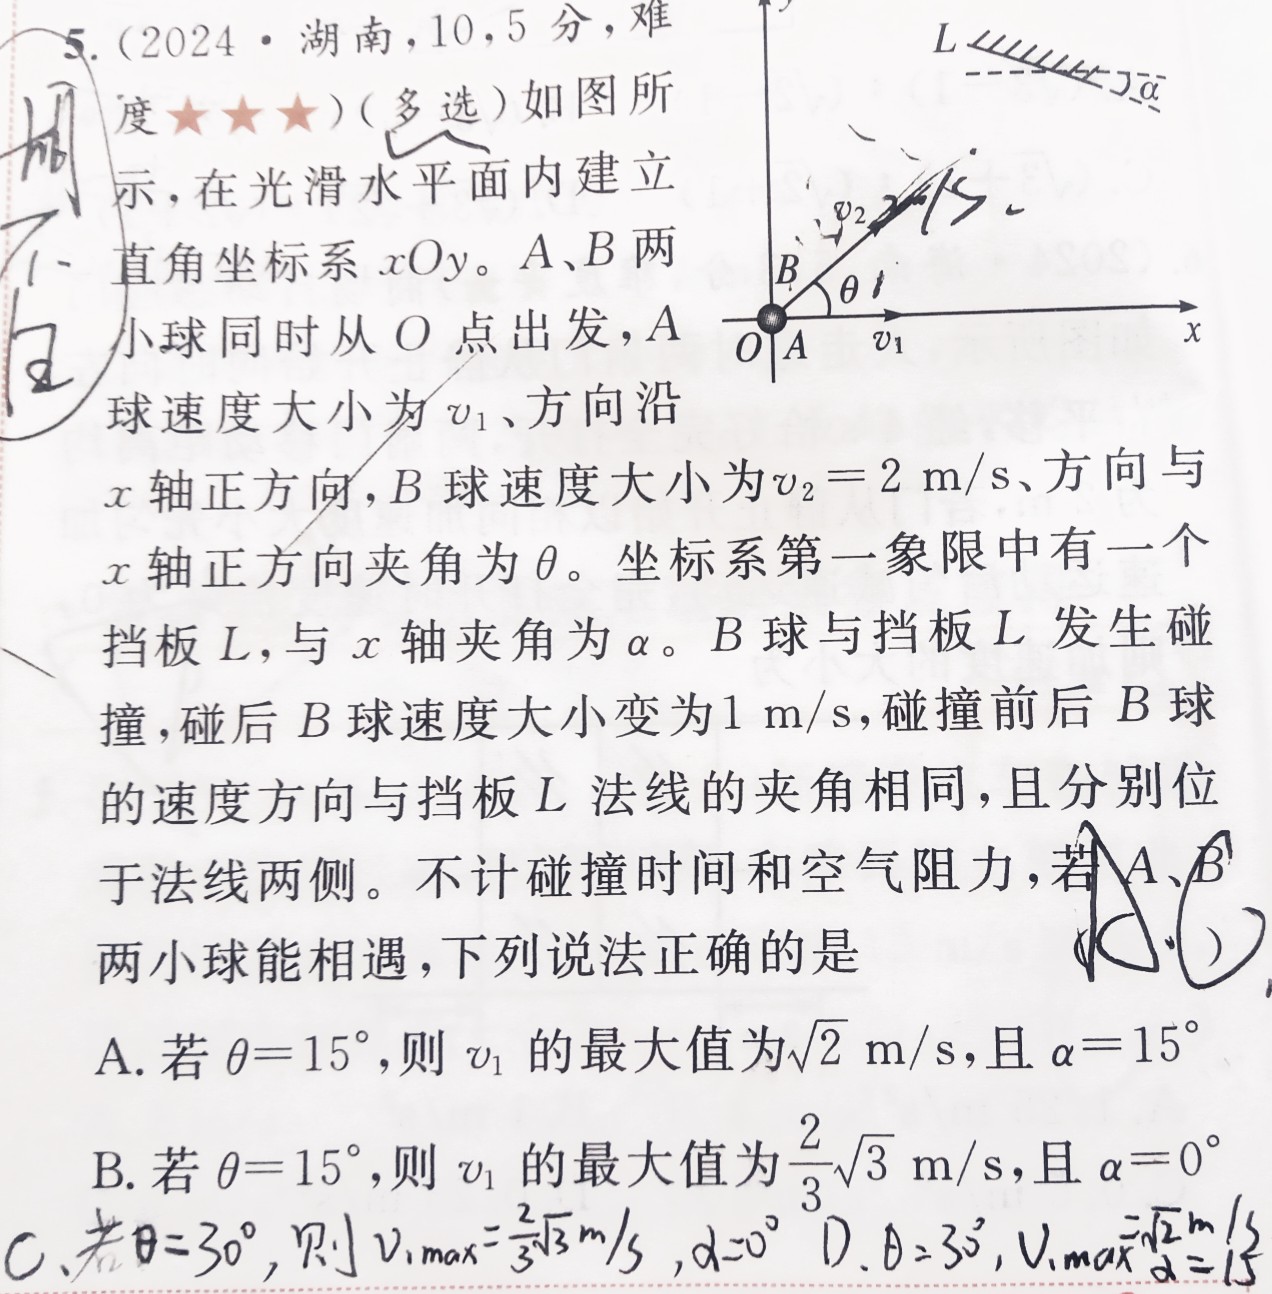 5.(2024·湖南,10,5分,难
度★★★)(多选)如图所
示,在光滑水平面内建立
直角坐标系 xOy。A、B 两
小球同时从 O 点出发,A
球速度大小为 v₁、方向沿
x 轴正方向,B 球速度大小为v₂=2 m/s、方向与
x 轴正方向夹角为 θ。坐标系第一象限中有一个
挡板 L,与 x 轴夹角为 α。B 球与挡板 L 发生碰
撞,碰后 B 球速度大小变为1 m/s,碰撞前后 B 球
的速度方向与挡板 L 法线的夹角相同,且分别位
于法线两侧。不计碰撞时间和空气阻力,若 A、B
两小球能相遇,下列说法正确的是 ( )
AC
A.若 θ=15°,则 v₁ 的最大值为√2 m/s,且 α=15°
B.若 θ=15°,则 v₁ 的最大值为2/3√3 m/s,且 α=0°
C、若θ=30°,则 V₁max=2/3√3m/s,α=0° D.θ=30°,V₁max=√2m/s
α=15
y
L
α
v₂ 2m/s
B
θ
O A v₁ x